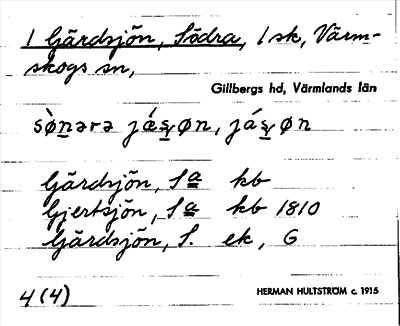 1 Gärdsjön, Södra, 1 sk, Värm-
skogs sn,
Gillbergs hd, Värmlands län
sø̀nərə jǽsv̥øn, jásv̥øn
Gärdsjön, Sa kb
Gjertsjön, Sa kb 1810
Gärdsjön, S. ek, G
4(4)
HERMAN HULTSTRÖM c. 1915